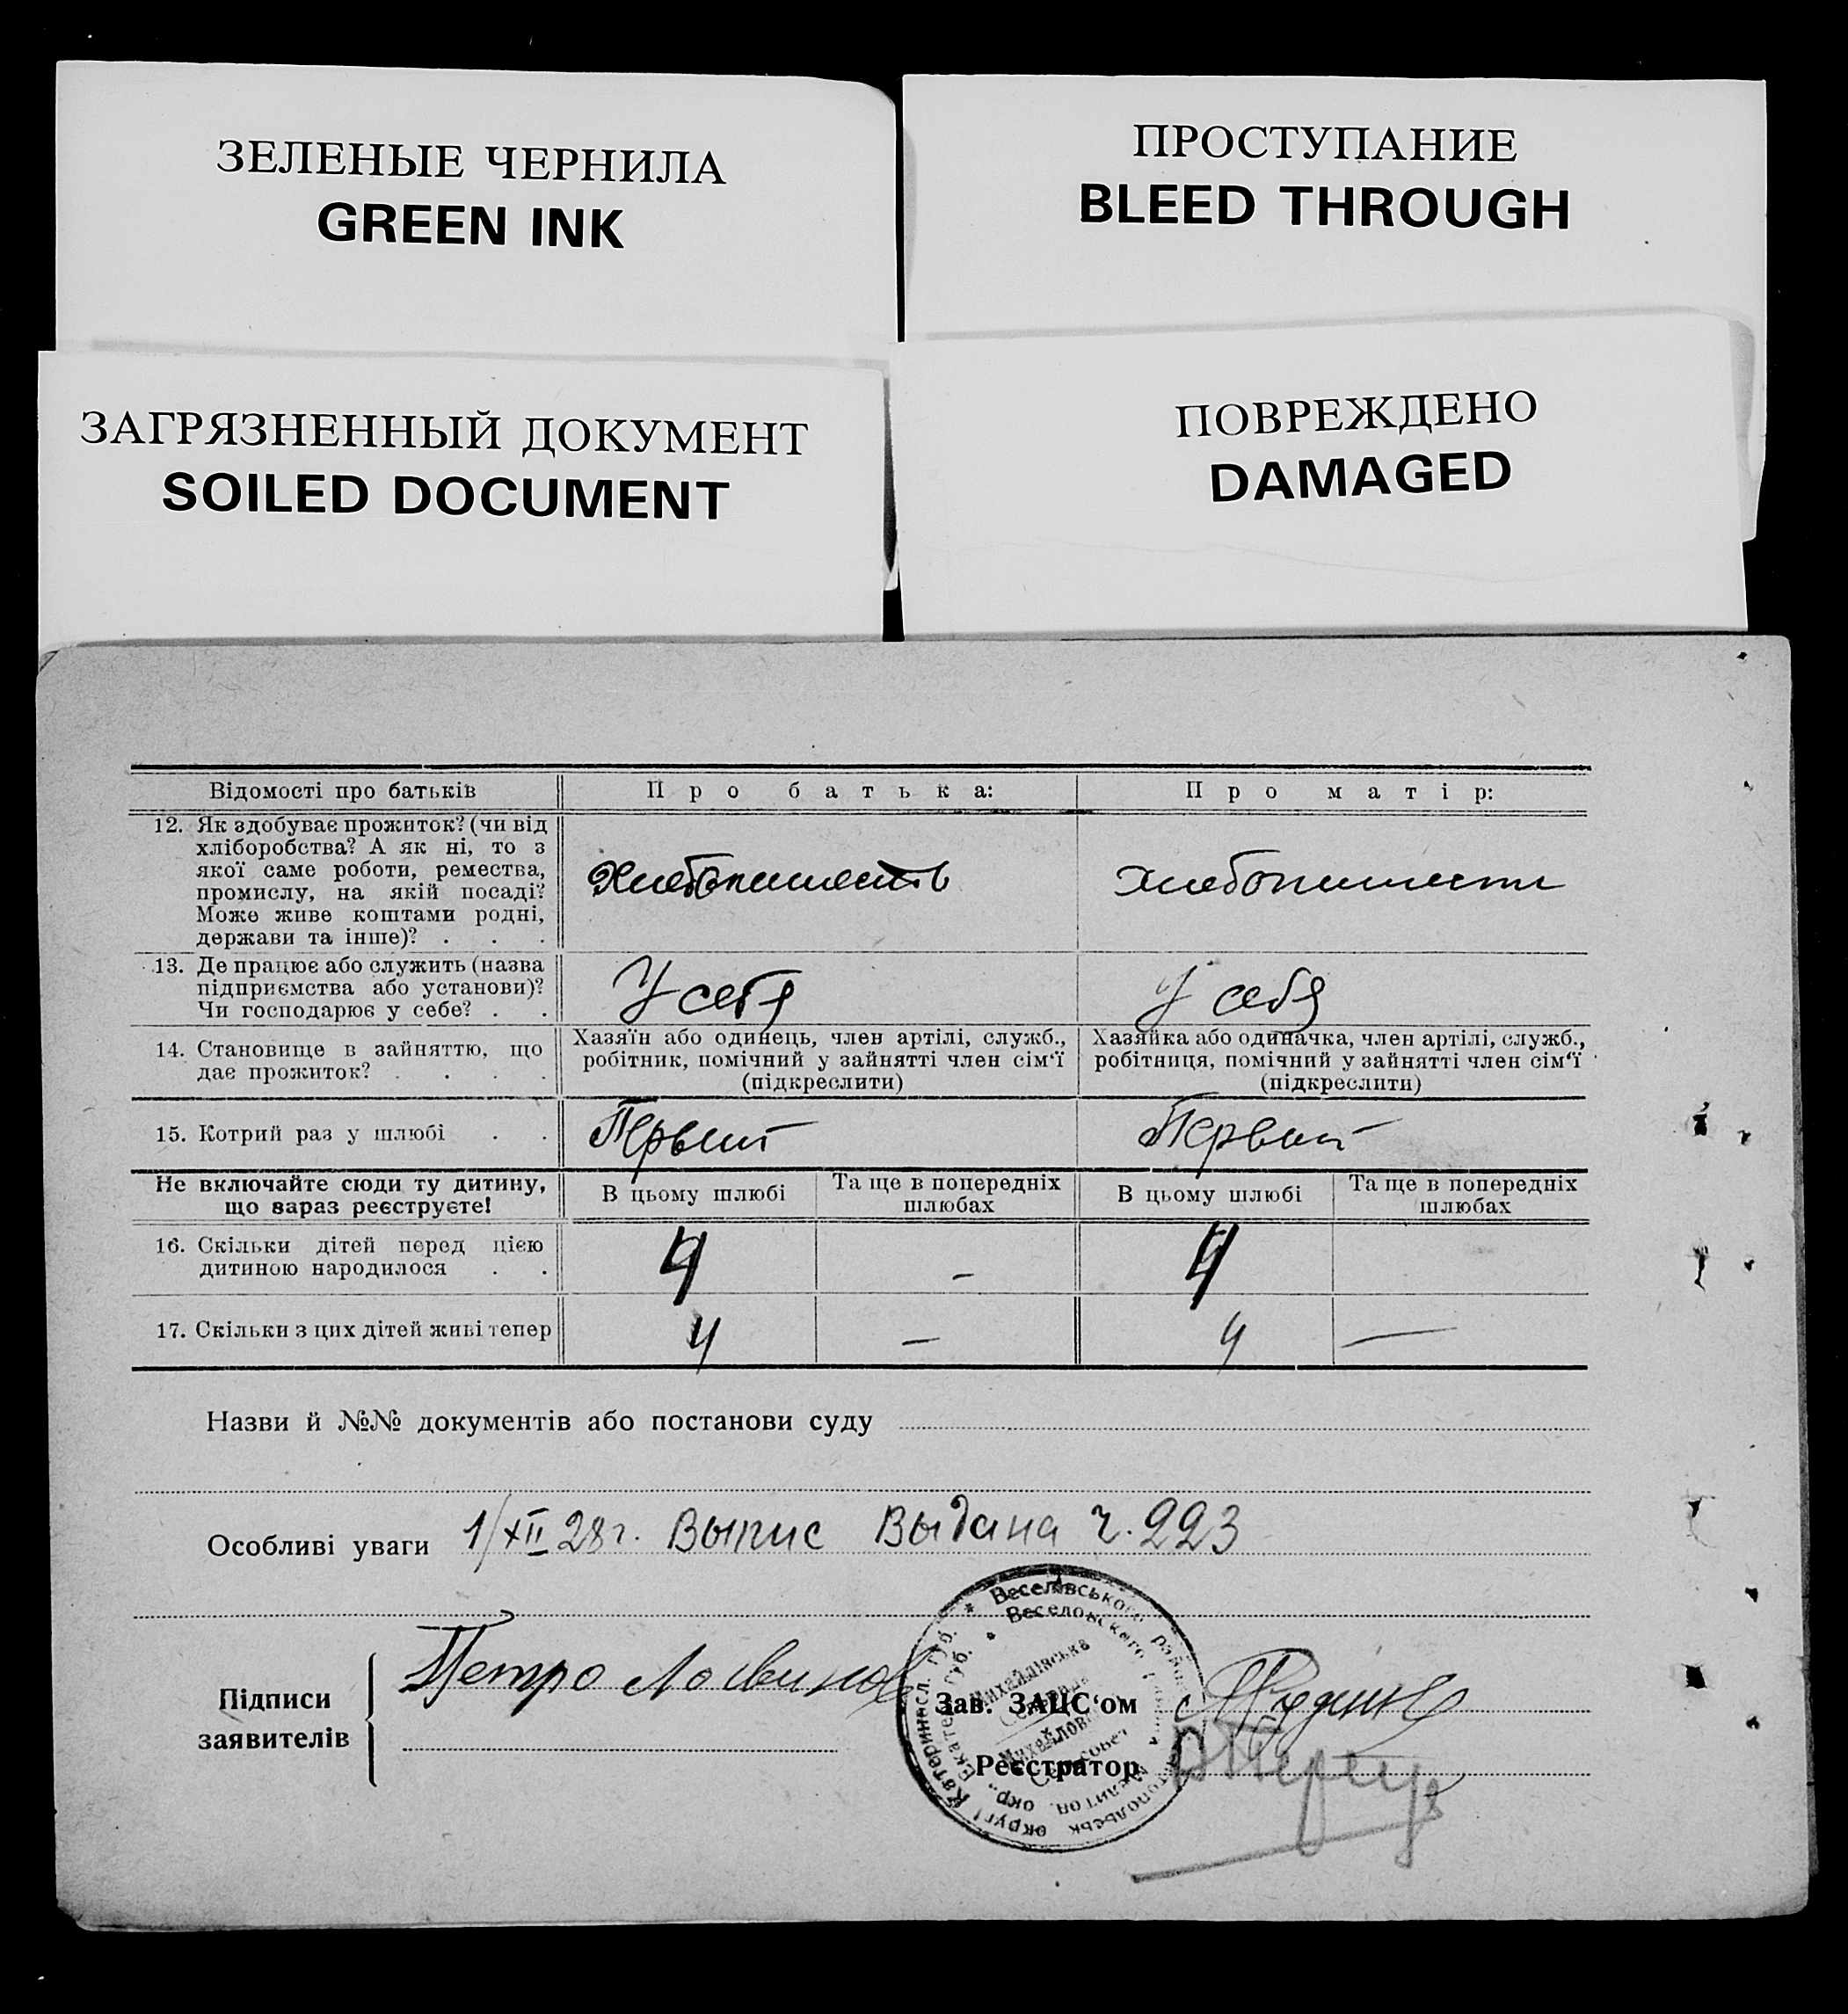 ЗЕЛЕНЫЕ ЧЕРНИЛА
GREEN INK
ПРОСТУПАНИЕ
BLEED THROUGH
ЗАГРЯЗНЕННЫЙ ДОКУМЕНТ
SOILED DOCUMENT
ПОВРЕЖДЕНО
DAMAGED
Відомості про батьків
Про батька:
Про матір:
12. Як здобуває прожиток? (чи від
хліборобства? А як ні, то з
якої саме роботи, ремества,
промислу, на якій посаді?
Може живе коштами родні,
держави та інше)? . . .
Хлебопашеств
хлебопашеств
13. Де працює або служить (назва
підприємства або установи)?
Чи господарює у себе? . .
У себя
У себя
14. Становище в зайняттю, що
дає прожиток? . . . .
Хазяїн або одинець, член артілі, служб.,
робітник, помічний у зайнятті член сім'ї
(підкреслити)
Хазяйка або одиначка, член артілі, служб.,
робітниця, помічний у зайнятті член сім'ї
(підкреслити)
15. Котрий раз у шлюбі . .
Первый
Первый
Не включайте сюди ту дитину,
що зараз реєструєте!
В цьому шлюбі
Та ще в попередніх
шлюбах
В цьому шлюбі
Та ще в попередніх
шлюбах
16. Скільки дітей перед цією
дитиною народилося . .
4
–
4
17. Скільки з цих дітей живі тепер
4
–
4
—
Назви й №№ документів або постанови суду
Особливі уваги 1/XII 28 г. Выпис Выдана ч. 223
Підписи
заявителів
Петро Логвинов
Зав. ЗАЦС'ом
Реєстратор
Веселівського район
Веселовского район
Михайлівська
Сельрада
Михайловс
Сельсовет
Мелитоп. окр.
округ Катериносл. губ.
Екатер. губ.